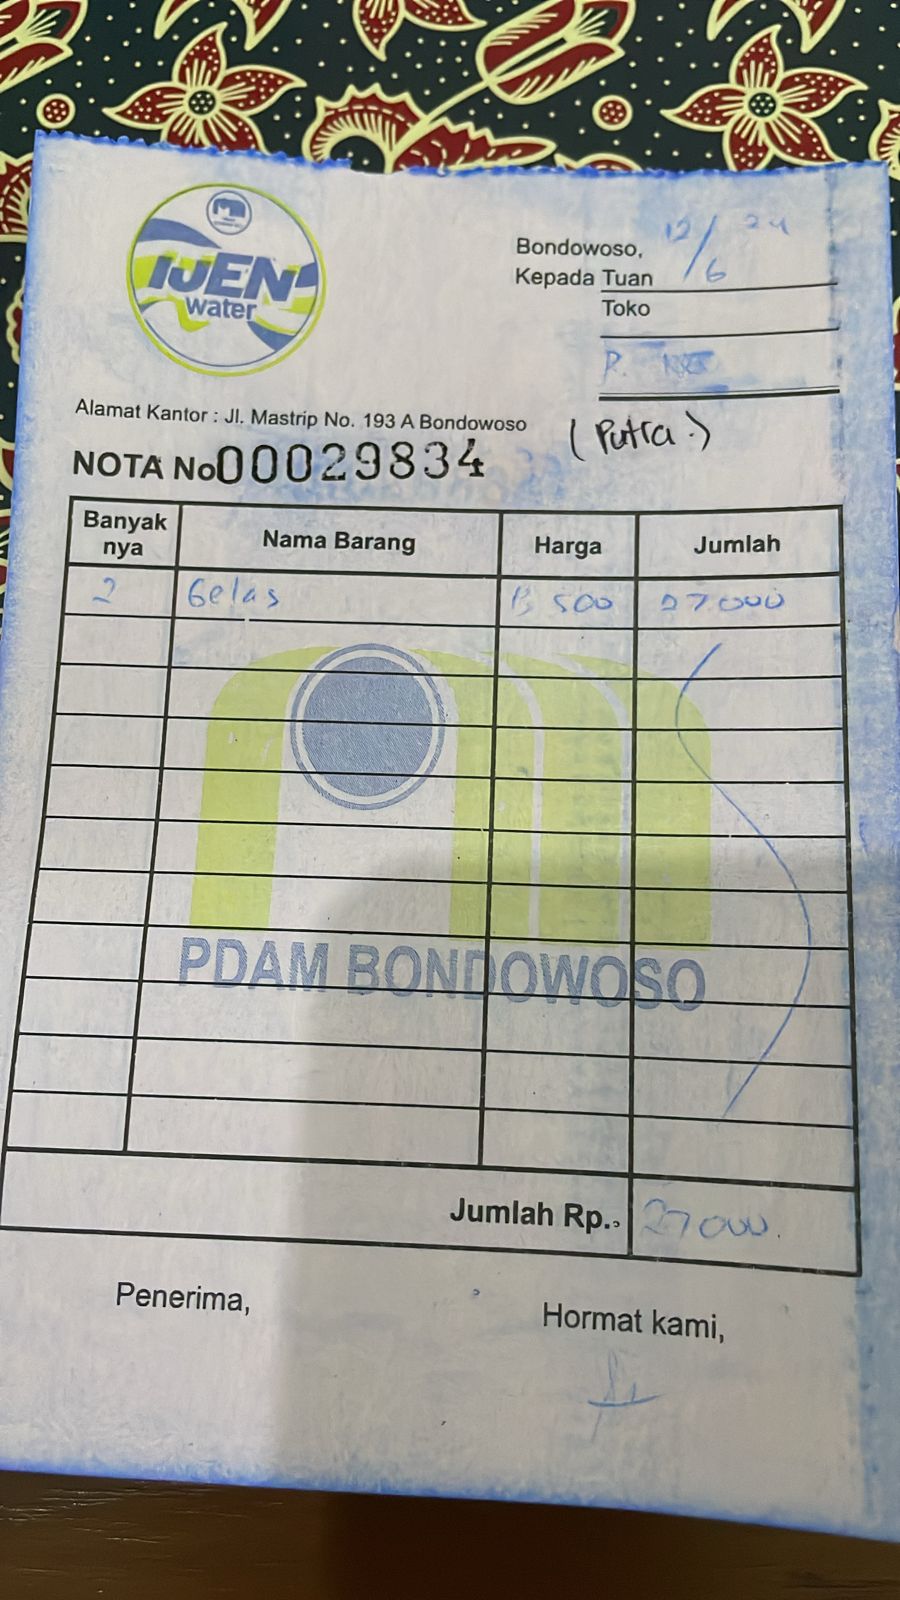 IJEN
water
Bondowoso, 12/6 24
Kepada Tuan
Toko
P.
Alamat Kantor : Jl. Mastrip No. 193 A Bondowoso
(Putra.)
NOTA No 00029834
Banyak nya Nama Barang Harga Jumlah
2 Gelas 13 500 27 000
PDAM BONDOWOSO
Jumlah Rp.. 27 000.
Penerima,
Hormat kami,